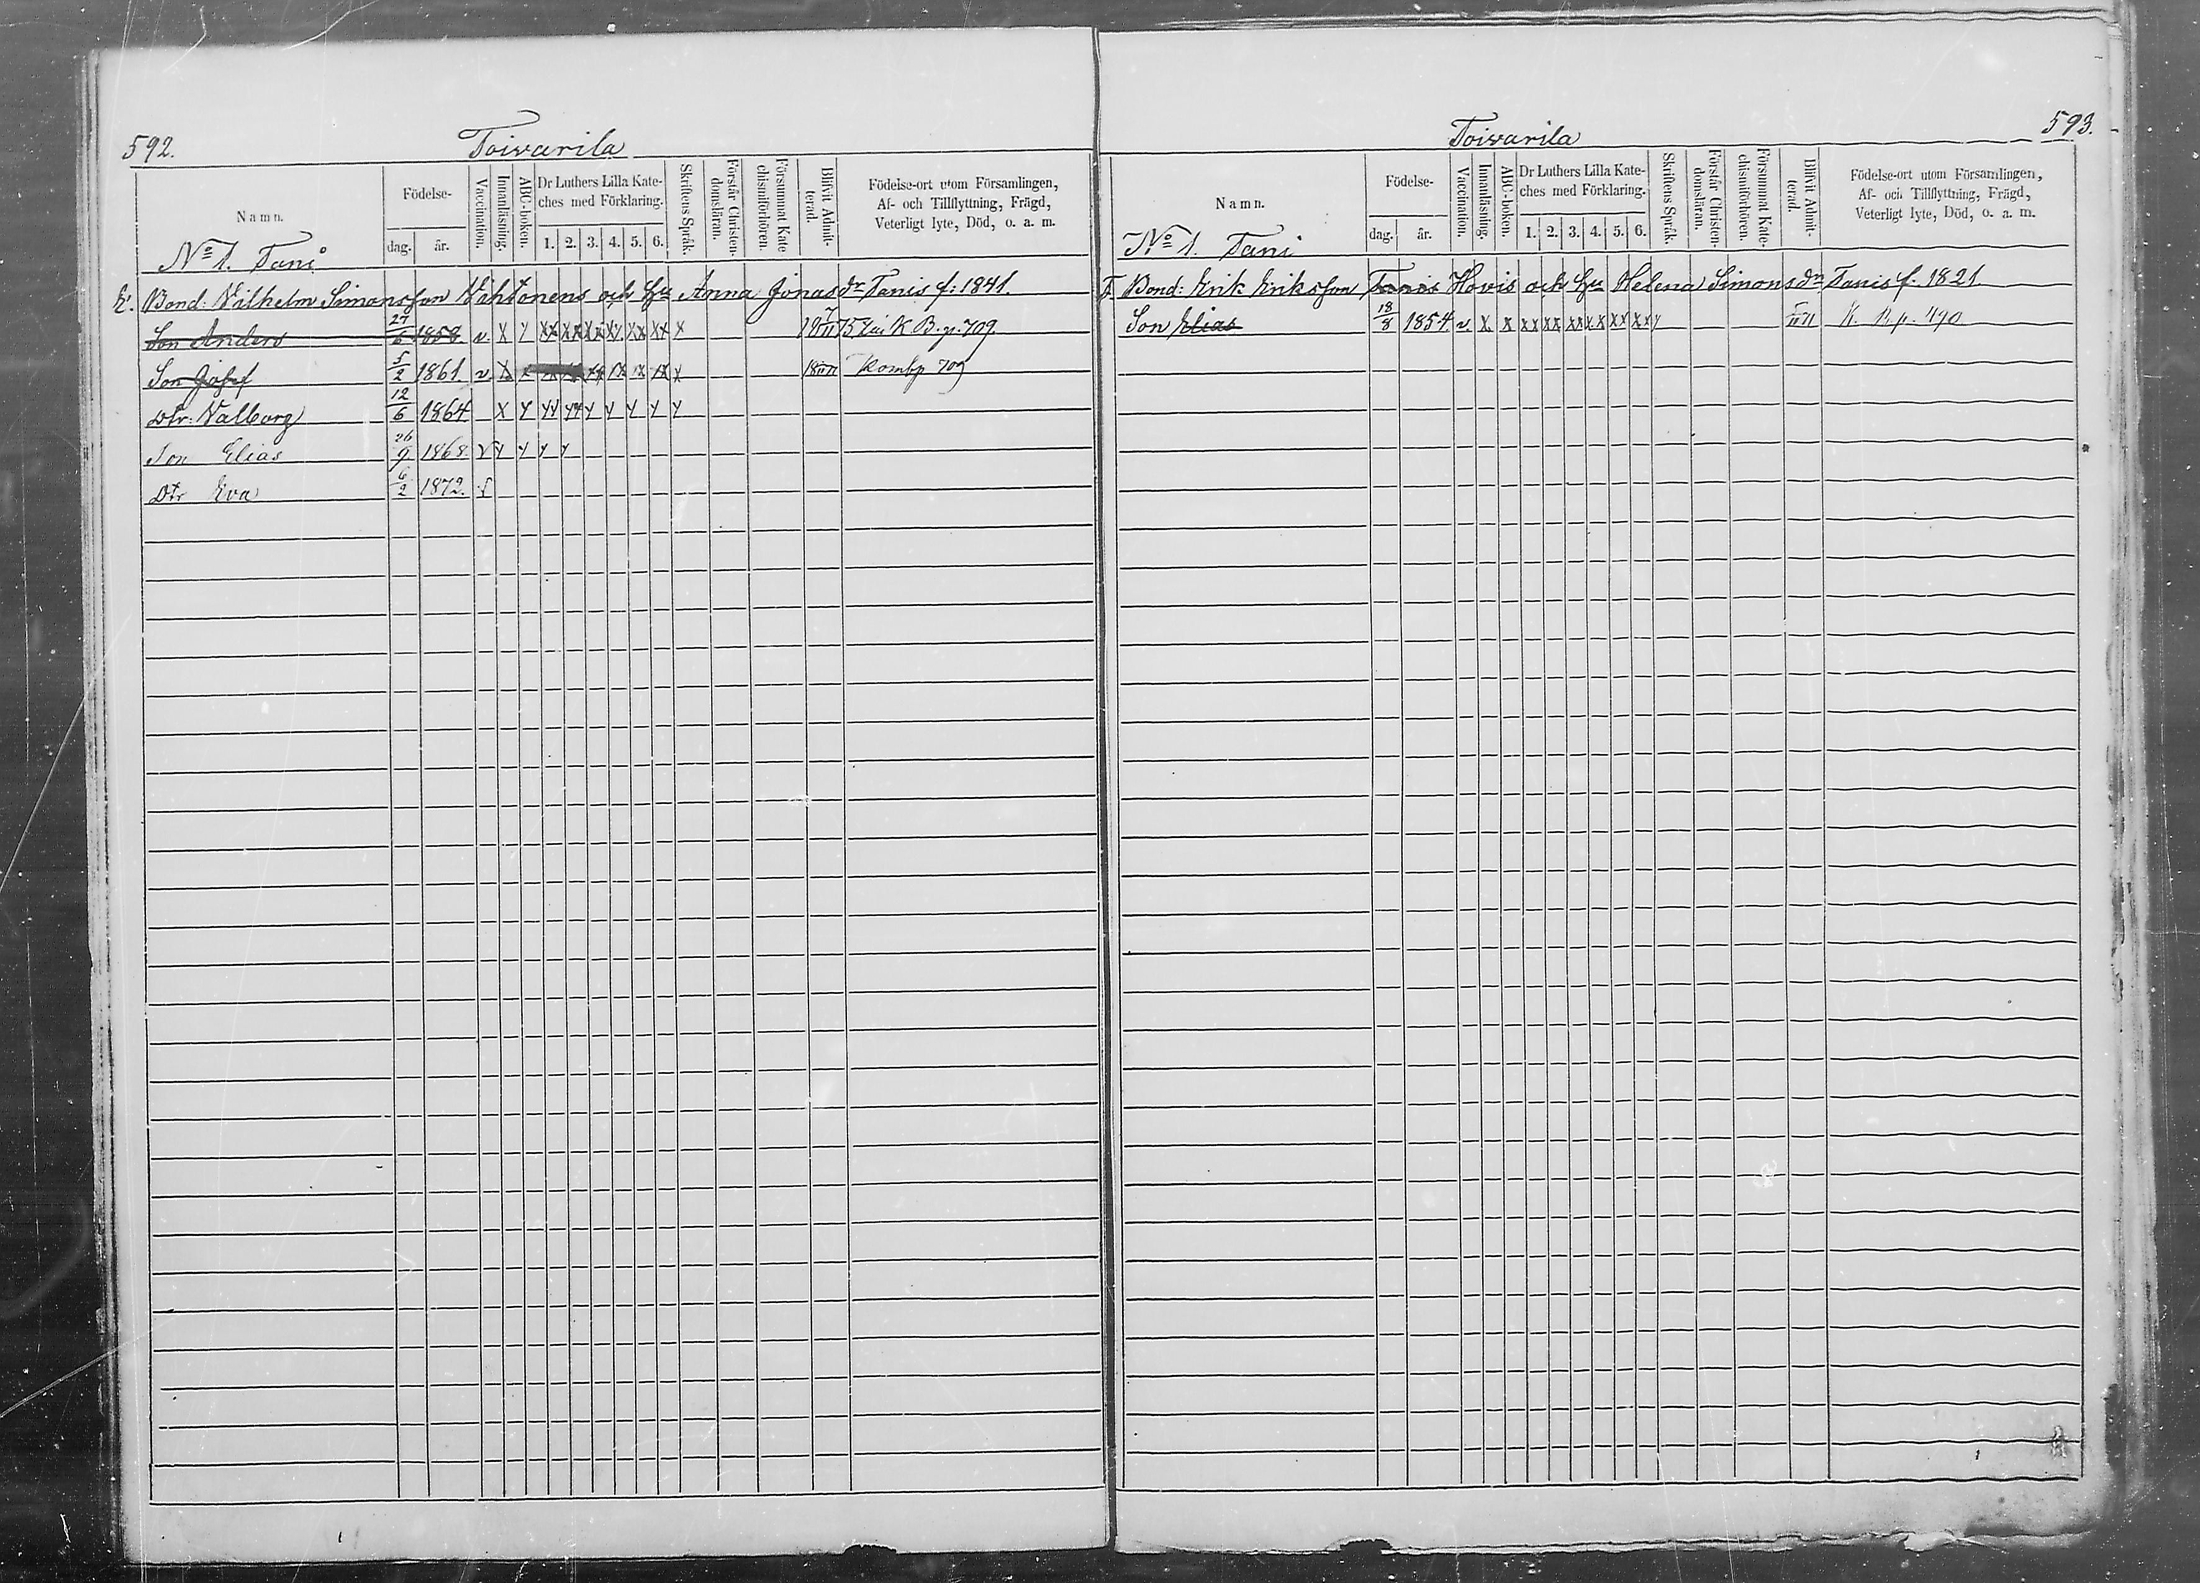 592.
Toivarila
Namn.
Födelse-
dag. år.
Vaccination.
Innanläsning.
ABC-boken.
Dr Luthers Lilla Kate-
ches med Förklaring.
1. 2. 3. 4. 5. 6.
Skriftens Språk.
Förstår Christen-
domsläran.
Försummat Kate
chismiförhören.
Blifvit Admit-
terad.
Födelse-ort utom Församlingen,
Af- och Tillflyttning, Frägd,
Veterligt lyte, Död, o. a. m.
No 1. Tani
Bond: Vilhelm Simonsson Vahtonens och Hu Anna Jonasdr Tanis f: 1841.
Son Anders 27/6 1858 v. X Y XX XX XX XY XX XX X K. B. p. 709
Son Josef 5/2 1861 v X X X Komb p 709
Dtr: Valborg 12/6 1864 X Y YY YY Y Y Y Y Y
Son Elias 26/9 1868 V Y Y Y Y
Dtr Eva 6/2 1872.
593.
Toivarila
Namn.
Födelse-
dag. år.
Vaccination.
Innanläsning.
ABC-boken.
Dr Luthers Lilla Kate-
ches med Förklaring.
1. 2. 3. 4. 5. 6.
Skriftens Språk.
Förstår Christen-
domsläran.
Försummat Kate-
chismiförhören.
Blifvit Admit-
terad.
Födelse-ort utom Församlingen,
Af- och Tillflyttning, Frägd,
Veterligt lyte, Död, o. a. m.
No 1. Tani
Bond: Erik Eriksson Tanis Hovis och Hu Helena Simonsdr Tanis f. 1821
Son Elias 18/8 1854 v X X XX XX XX XX XX XX Y K. B. p. 490